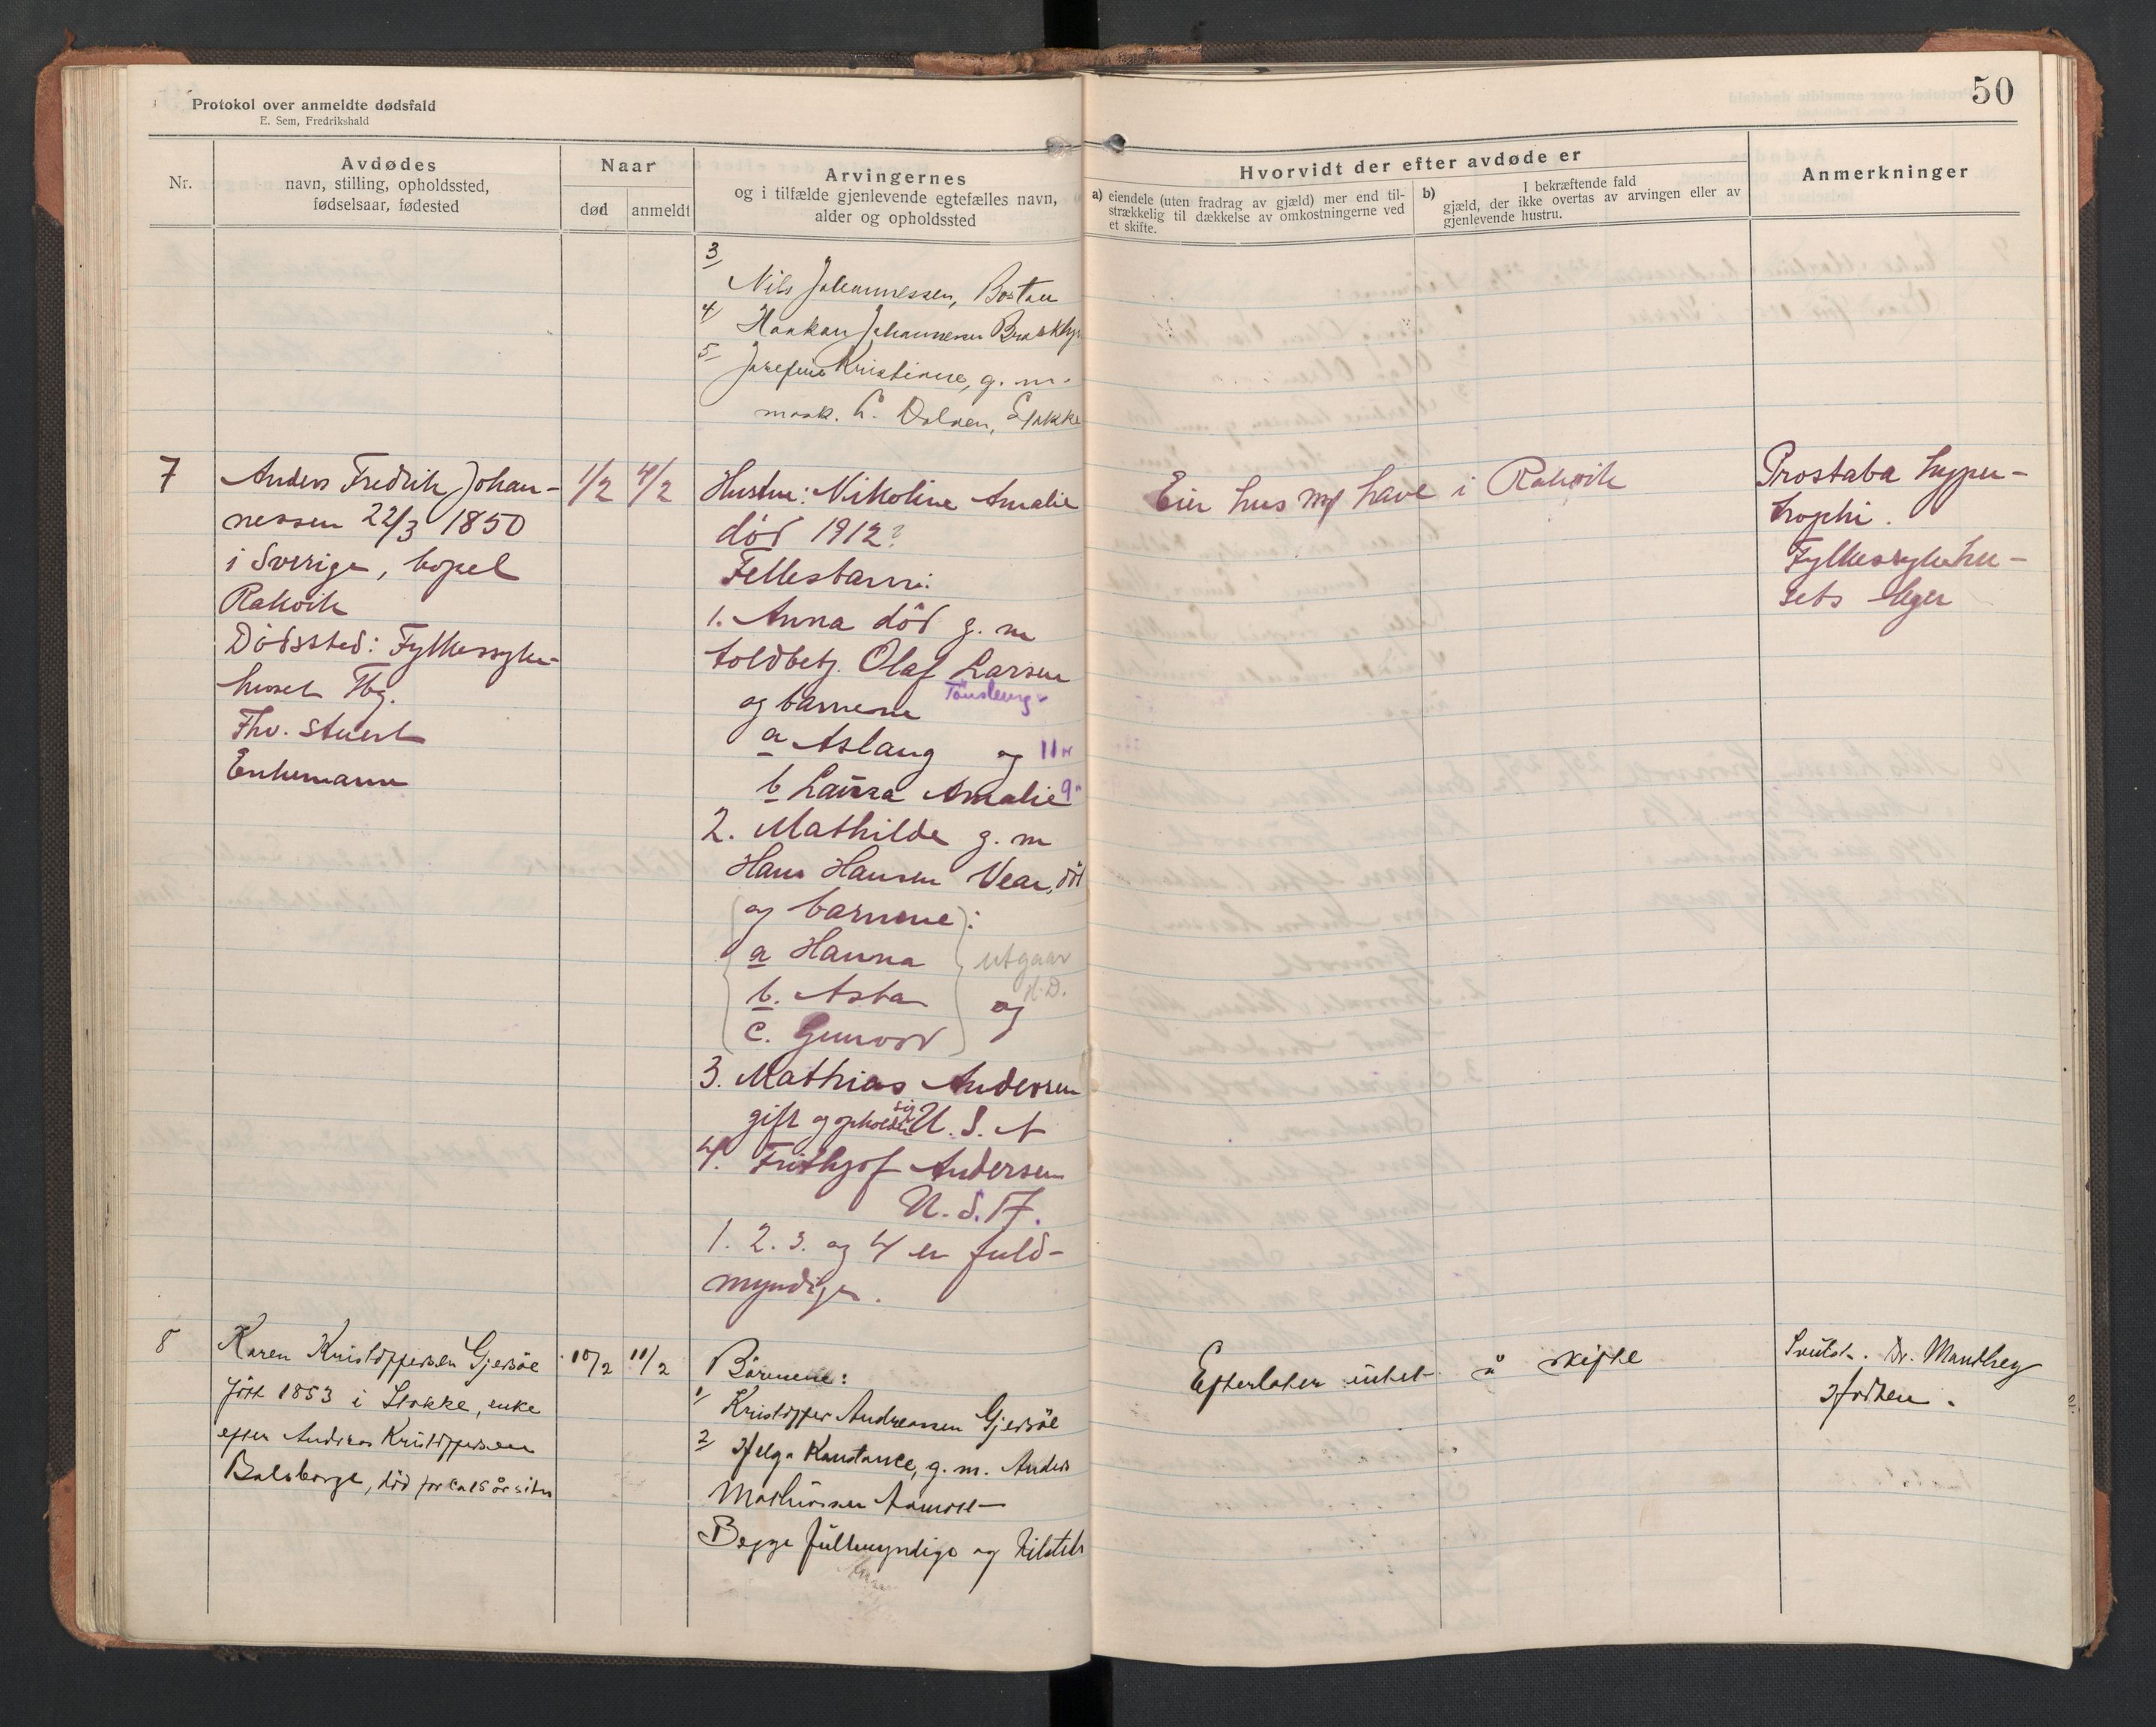 50
Protokol over anmeldte dødsfald
E. Sem, Fredrikshald
Nr.
Avdødes
navn, stilling, opholdssted,
fødselsaar, fødested
Naar
død
anmeldt
Arvingernes
og i tilfælde gjenlevende egtefælles navn,
alder og opholdssted
Hvorvidt der efter avdøde er
a) eiendele (uten fradrag av gjæld) mer end til-
strækkelig til dækkelse av omkostningerne ved
et skifte.
b) I bekræftende fald
gjæld, der ikke overtas av arvingen eller av
gjenlevende hustru.
Anmerkninger
3/
Nils Johannessen, Boston
4/ Haakon Johannessen Brooklyn
5/ Josefine Kristiane, g. m.
mask. L. Dalen, Stokke
7
Anders Fredrik Johan-
nessen 22/3 1850
i Sverige, bopel
Rakvik
Dødssted: Fylkessyke-
huset Tbg.
Fhv. stuert
Enkemann
1/2
4/2
Hustru: Nikoline Amalie
død 1912?
Fellesbarn:
1. Anna død g. m
toldbetj. Olaf Larsen
Tønsberg
og barnene
a Aslaug og 11 år
b Laura Amalie 9 "
2. Mathilde g. m
Hans Hansen Vear, død
(og barnene):
a Hanna
utgaar
b. Asta og
H.D.
c. Gunvor
3. Mathias Andersen
gift og opholder sig U. S. A
4. Frithjof Andersen
U. S. A.
1. 2. 3. og 4 er fuld-
myndige.
Eier hus m/ have i Rakvik
Prostata hyper-
trophi.
Fylkessykehu-
sets læge
8
Karen Kristoffersen Gjersøe
født 1853 i Stokke, enke
efter Andreas Kristoffersen
, død for ca 15 år siden
10/2
11/2
Børnene:
1/ Kristoffer Andreassen Gjersøe
2/ Helga Konstance, g. m. Anders
Mathisen
Begge fuldmyndige og tilstede
Efterlater intet å skifte
Dr. Manthey
Horten.